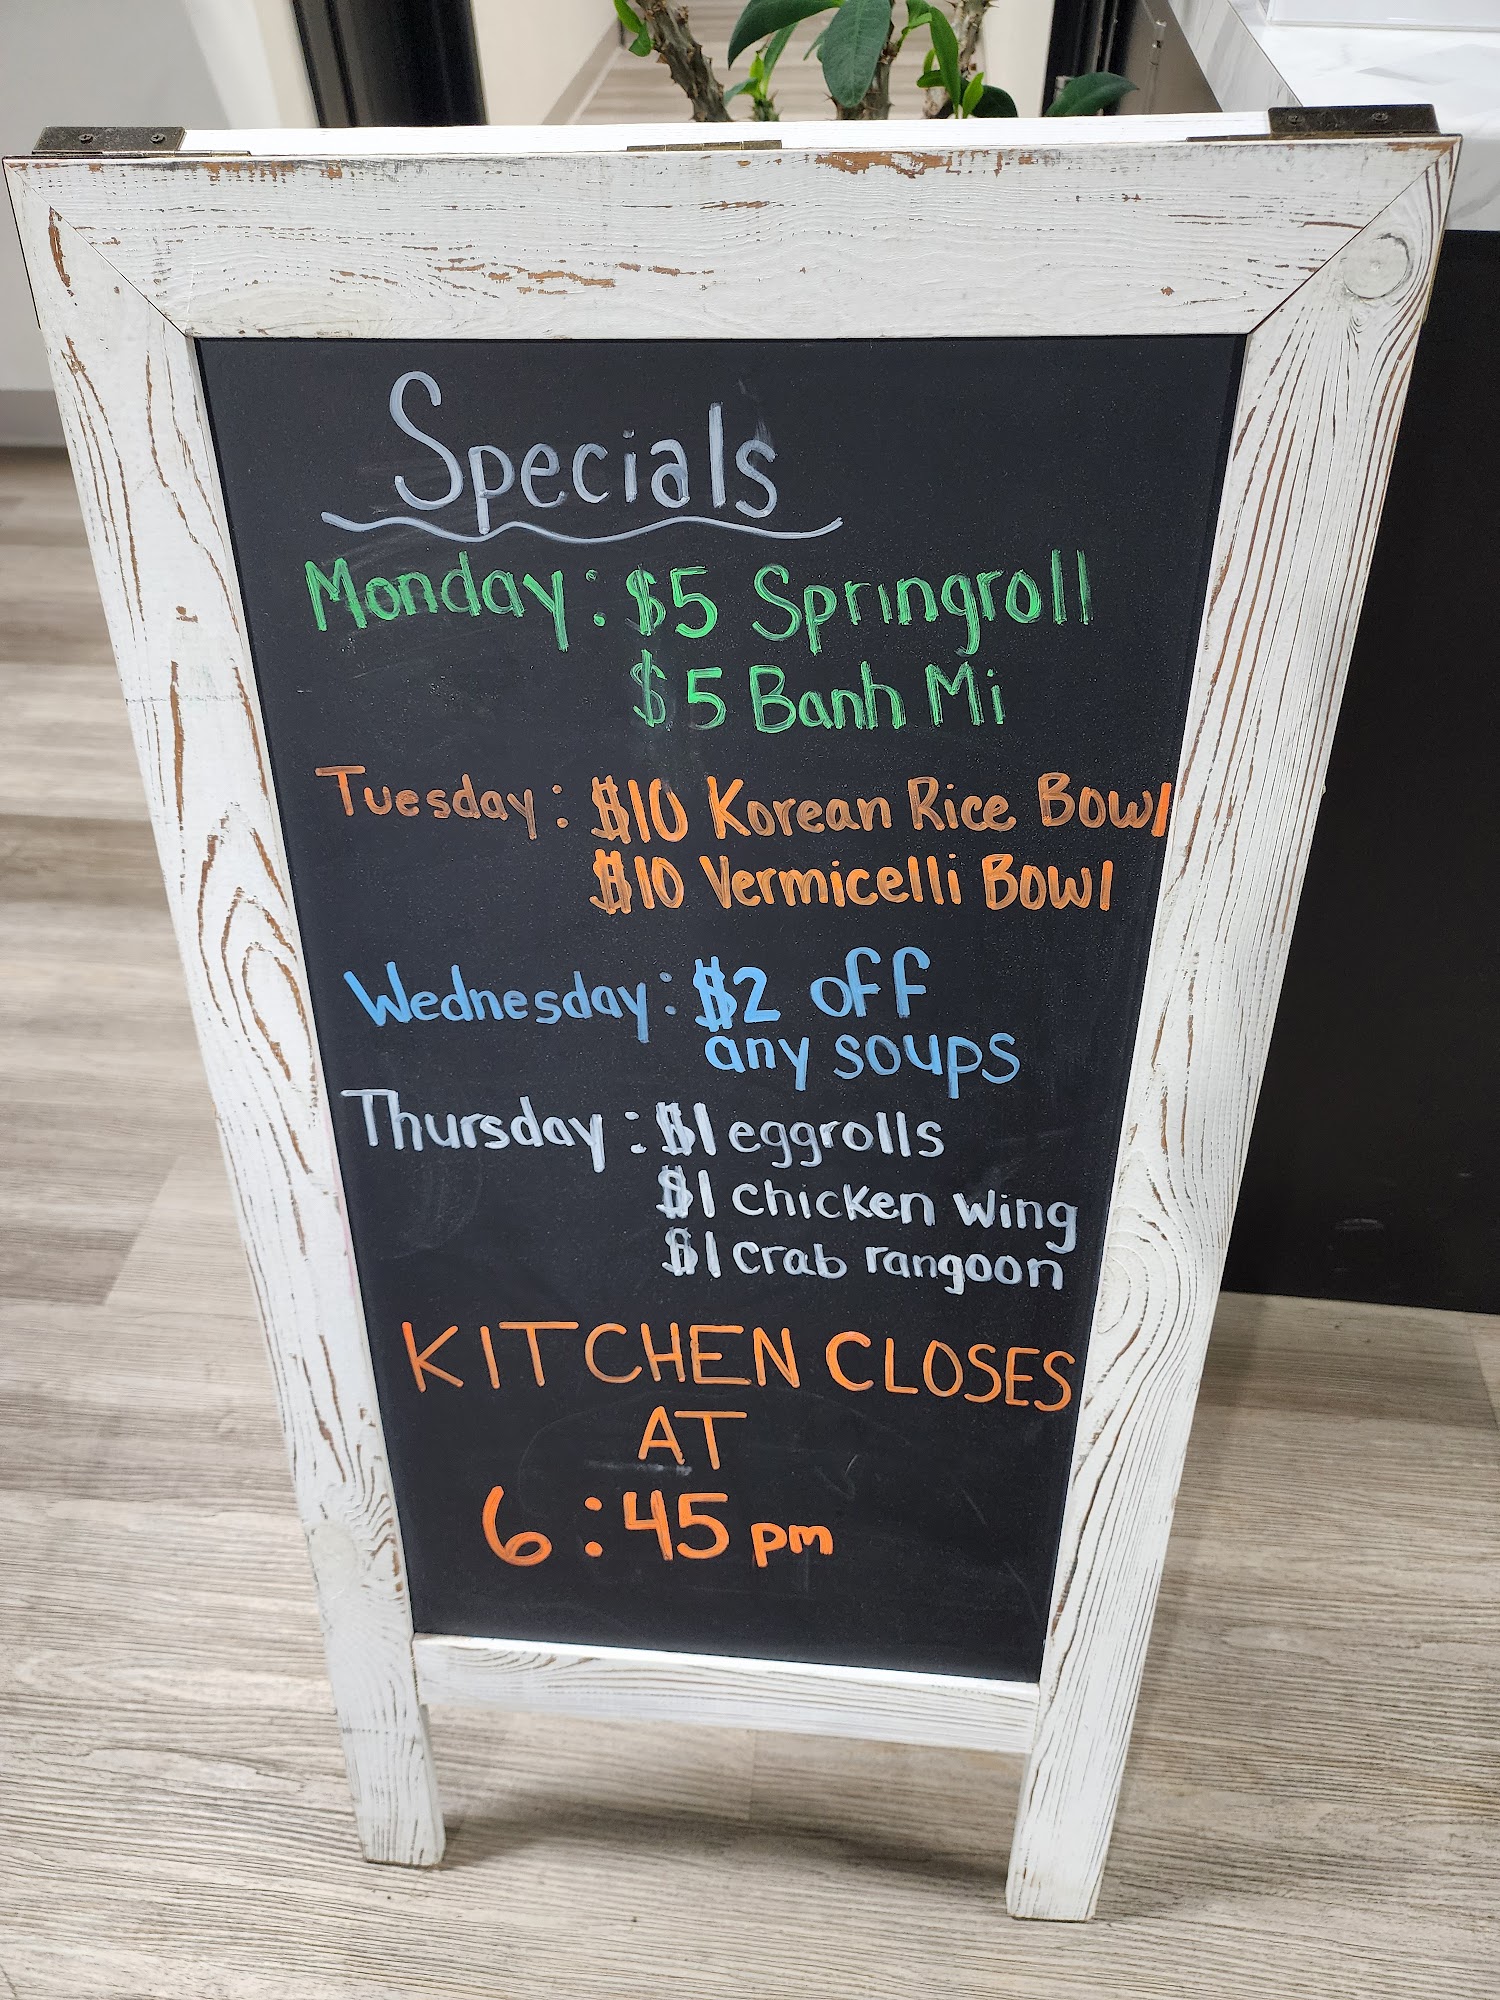 Specials
Monday: $5 Springroll
$5 Banh Mi
Tuesday: $10 Korean Rice Bowl
$10 Vermicelli Bowl
Wednesday: $2 off
any soups
Thursday: $1 eggrolls
$1 chicken wing
$1 crab rangoon
KITCHEN CLOSES
AT
6:45 pm